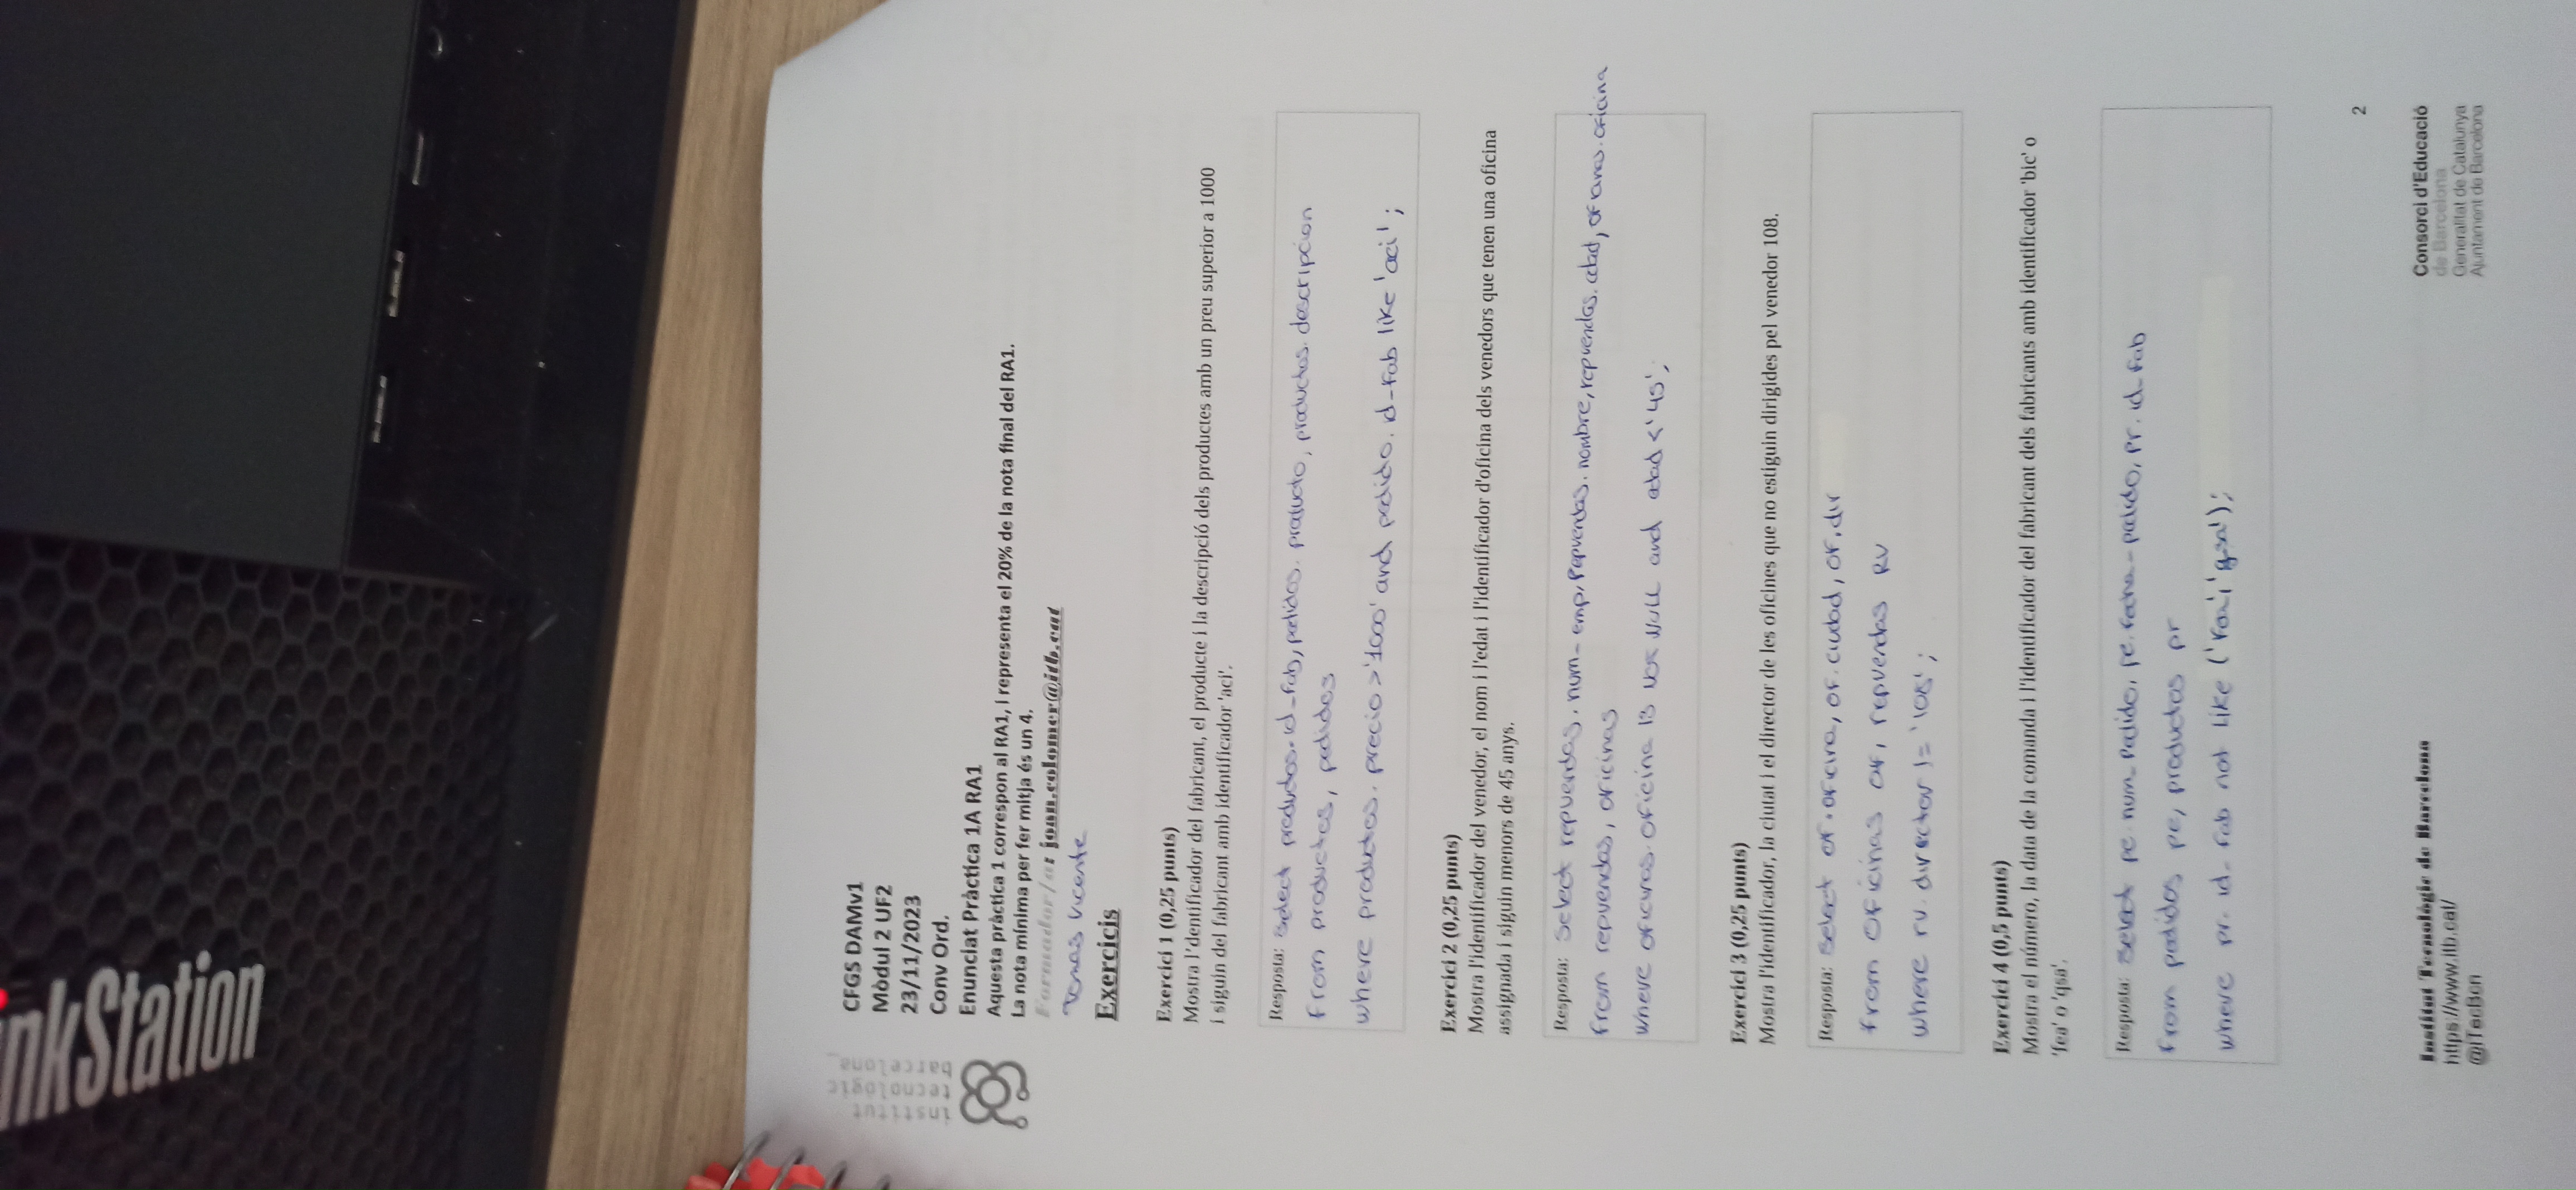 nkStation
institut
tecnològic
barcelona_
CFGS DAMv1
Mòdul 2 UF2
23/11/2023
Conv Ord.
Enunciat Pràctica 1A RA1
Aquesta pràctica 1 correspon al RA1, i representa el 20% de la nota final del RA1.
La nota mínima per fer mitja és un 4.
Formador/a: joan.colomer@itb.cat
Tomas Vicente
Exercicis
Exercici 1 (0,25 punts)
Mostra l'dentificador del fabricant, el producte i la descripció dels productes amb un preu superior a 1000
i siguin del fabricant amb identificador 'aci'.
Resposta: select productos.id_fab, pedidos.producto, productos.descripcion
from productos, pedidos
where productos.precio >'1000' and pedido.id_fab like 'aci';
Exercici 2 (0,25 punts)
Mostra l'identificador del venedor, el nom i l'edat i l'identificador d'oficina dels venedors que tenen una oficina
assignada i siguin menors de 45 anys.
Resposta: select repventas.num_emp, repventas.nombre, repventas.edad, oficinas.oficina
from repventas, oficinas
where oficinas.oficina is not NULL and edad <'45';
Exercici 3 (0,25 punts)
Mostra l'identificador, la ciutat i el director de les oficines que no estiguin dirigides pel venedor 108.
Resposta: select of.oficina, of.ciudad, of.dir
from oficinas of, repventas RV
where rv.director != '108';
Exercici 4 (0,5 punts)
Mostra el número, la data de la comanda i l'identificador del fabricant dels fabricants amb identificador 'bic' o
'fea' o 'qsa'.
Resposta: select pe.num_pedido, pe.fecha_pedido, pr.id_fab
from pedidos pe, productos pr
where pr.id_fab not like ('fea','qsa');
2
Institut Tecnològic de Barcelona
https://www.itb.cat/
@iTecBcn
Consorci d'Educació
de Barcelona
Generalitat de Catalunya
Ajuntament de Barcelona